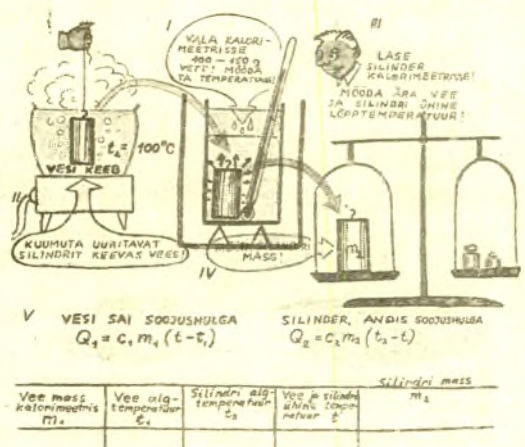 I
VALA KALORI-
MEETRISSE
100 — 150 g
VETT! MÕÕDA
TA TEMPERATUUR!
III
LASE
SILINDER
KALORIMEETRISSE!
MÕÕDA ÄRA VEE
JA SILINDRI ÜHINE
LÕPPTEMPERATUUR!
t₂ = 100°C
VESI KEEB
II
KUUMUTA UURITAVAT
SILINDRIT KEEVAS VEES!
IV
MASS!
m₂
V VESI SAI SOOJUSHULGA
Q₁ = c₁ m₁ (t - t₁)
SILINDER ANDIS SOOJUSHULGA
Q₂ = c₂ m₂ (t₂ - t)
Vee mass
kalorimeetris
m₁
Vee alg-
temperatuur
t₁
Silindri alg-
temperatuur
t₂
Vee ja silindri
ühine tempe-
ratuur t
Silindri mass
m₂